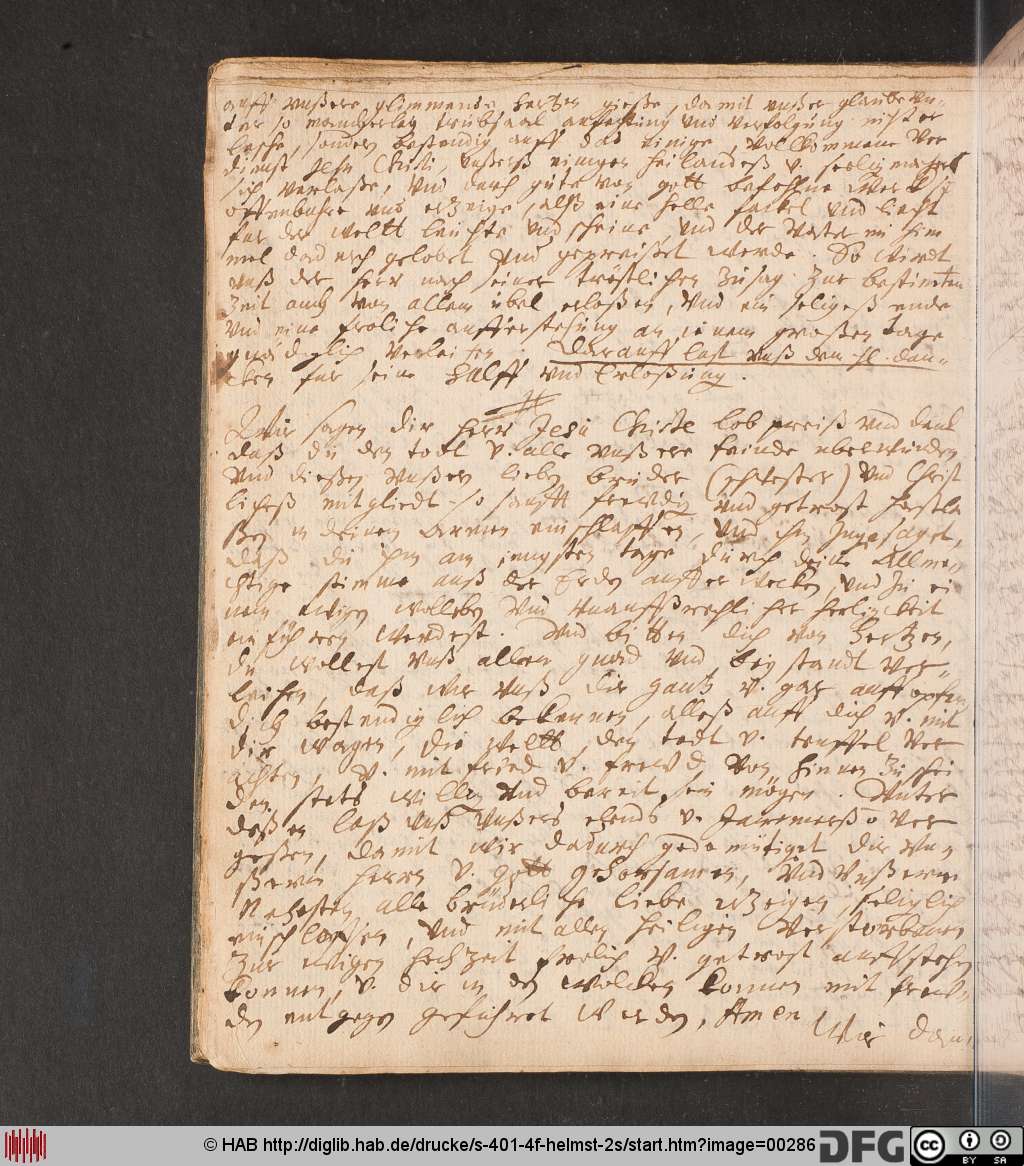 auff unßere glimmende hertzen gieße, damit unßer glaube un-
ter so mancherley trübsaal anfechtung und verfolgung nicht er
lesche, sondern bestendig auff das einige, vollkommene ver
dienst Jesu Christi, unßerß einigen heilandeß u. seeligmachers
sich verlaße, und durch gute von gott befohlne werck sich
offenbahre und erzeige, alß eine helle fackel und liecht
fur der weltt leuchte und scheine, und der Vater im him
mel dadurch gelobet und gepreißet werde. So wirdt
unß der Herr nach seiner trostlichen zusag zur bestimten
Zeit auch von allem übel erloßen, und ein seligeß ende
und eine froliche aufferstehung an jenem großen tage
gnädiglich verleihen. Darauff last unß dem hl. dan-
cken fur seine Hülff und Erloßung.
Wir sagen dir Herr Jesu Christe lob preiß und danck
daß du den todt u. alle unßere feinde uberwunden
und dießen unßern lieben bruder (schwester) und Christ
licheß mitgliedt so sanfft frewdig und getrost hast la
ßen in deinen armen einschlaffen, und ihm zugesaget,
daß du ihn am jungsten tage durch deine Allme-
chtige stimme auß der Erden aufferwecken, und zu ei
nem ewigen wolleben und unaußsprechlicher herligkeit
einfuhren werdest. Und bitten dich von hertzen,
du wollest unß allen gnad und beystandt ver-
leihen, daß wir unß dir gantz u. gar auffopfern
dich bestendiglich bekennen, alleß auff dich u. mit
dir wagen, die weltt, den todt u. teuffel ver
achten, u. mit fried u. frewd von hinnen zu schei
den stets willig und bereit sein mögen. Unter
deßen laß unß unßers elends u. Jammerß o ver
geßen, damit wir dadurch gedemütiget dir un
ßerm Herrn u. gott gehorsamen, und unßerm
Nehesten alle brüderliche liebe erzeigen, seliglich
einschlaffen, und mit allen heiligen verstorbenen
zur ewigen hochzeit frolich u. getrost aufstehen
konnen, u. dir in den wolcken konnen mit frew-
den entgegen gefuhret werden, Amen
Wir dan-
© HAB http://diglib.hab.de/drucke/s-401-4f-helmst-2s/start.htm?image=00286
DFG
CC BY SA